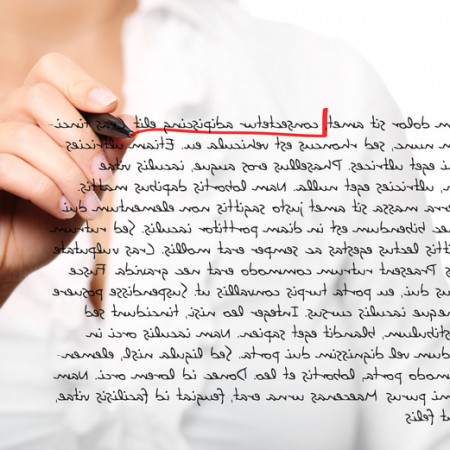 dolor sit amet, consectetur adipiscing elit. Cras tinci-
nunc, sed rhoncus est vehicula eu. Etiam ultricies
eget ultrices. Phasellus eros augue, iaculis vitae
ultricies eget nulla. Nam lobortis dapibus mattis.
massa sit amet justo sagittis non elementum
bibendum est in diam porttitor iaculis. Sed rutrum
lectus egestas ac semper erat mollis. Cras vulputate
Praesent rutrum commodo erat nec gravida. Fusce
dui, eu porta turpis convallis ut. Suspendisse posuere
iaculis cursus. Integer leo nisi, tincidunt sed
blandit eget sapien. Nam iaculis orci in
vel dignissim dui porta. Sed ligula nisl, elemen-
porta, lobortis et leo. Donec id lorem orci. Nam
mi purus Maecenas urna erat, feugiat id facilisis vitae,
ut felis